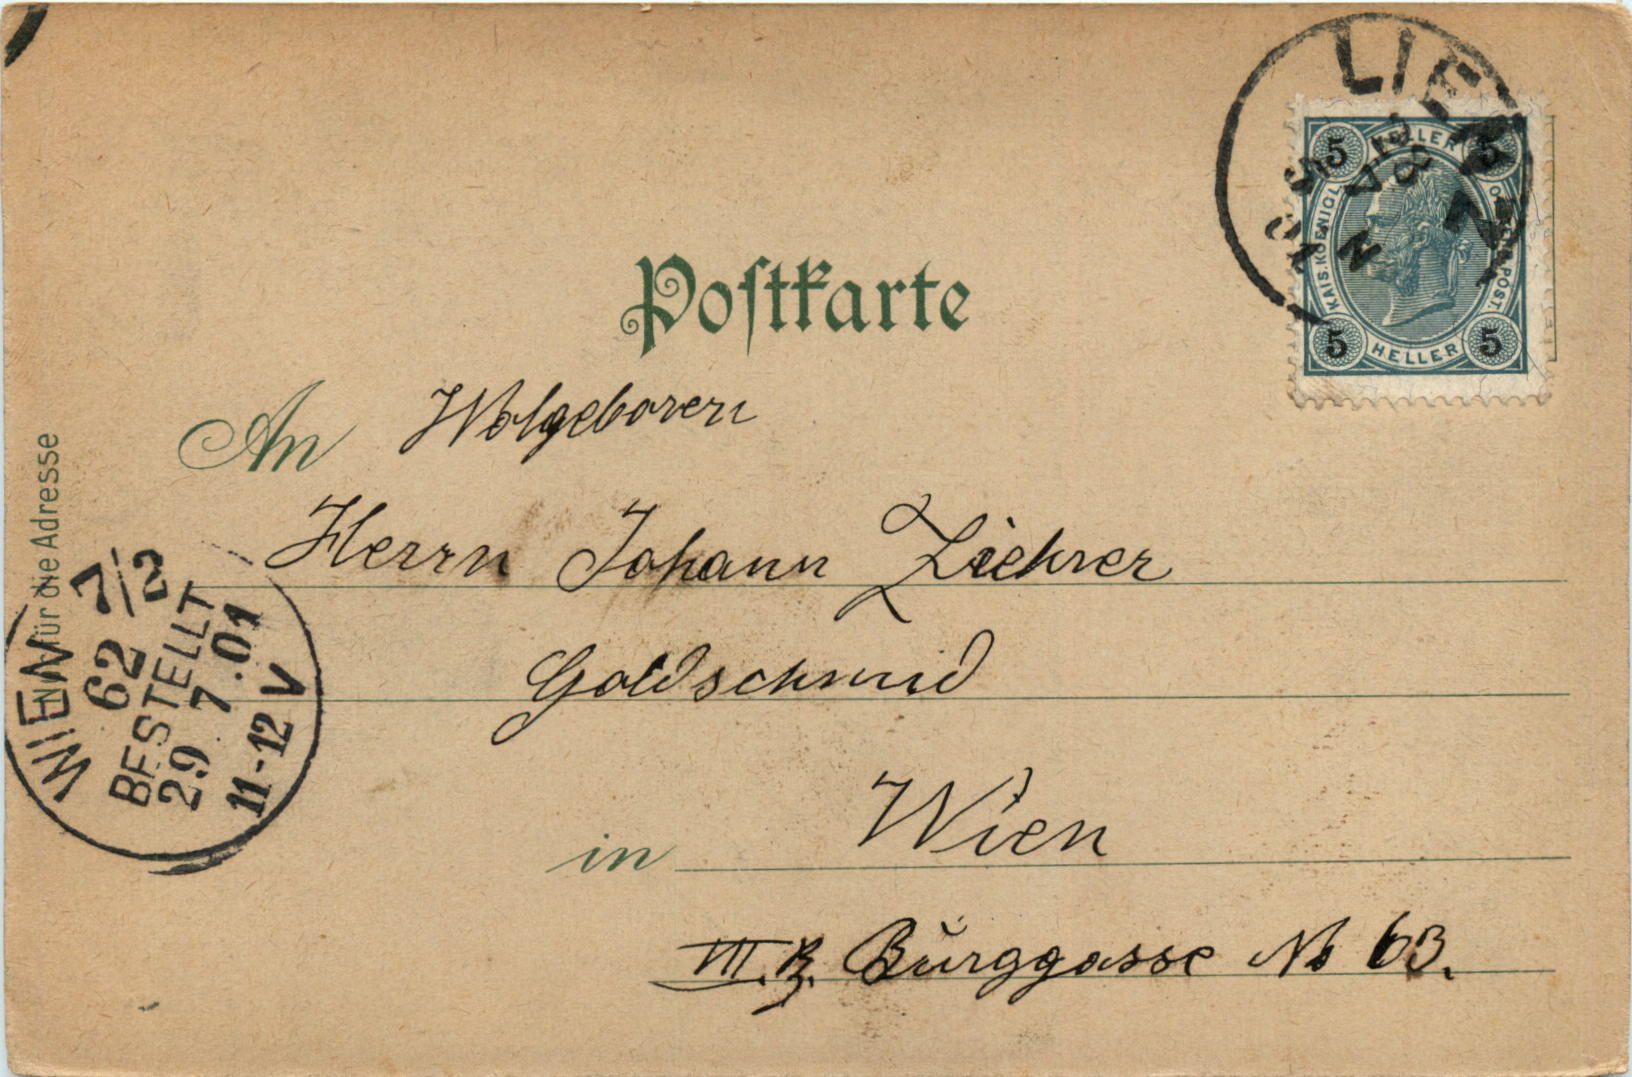 LIENZ
5 HELLER 5
KAIS. KOENIGL.
POST.
5 HELLER 5
Postkarte
An Wolgeboren
Herrn Johann Ziehrer
Goldschmid
in Wien
VII. Bz. Burggasse No 63.
Nur für die Adresse
WIEN 7/2
62
BESTELLT
29 7.01
11-12 V